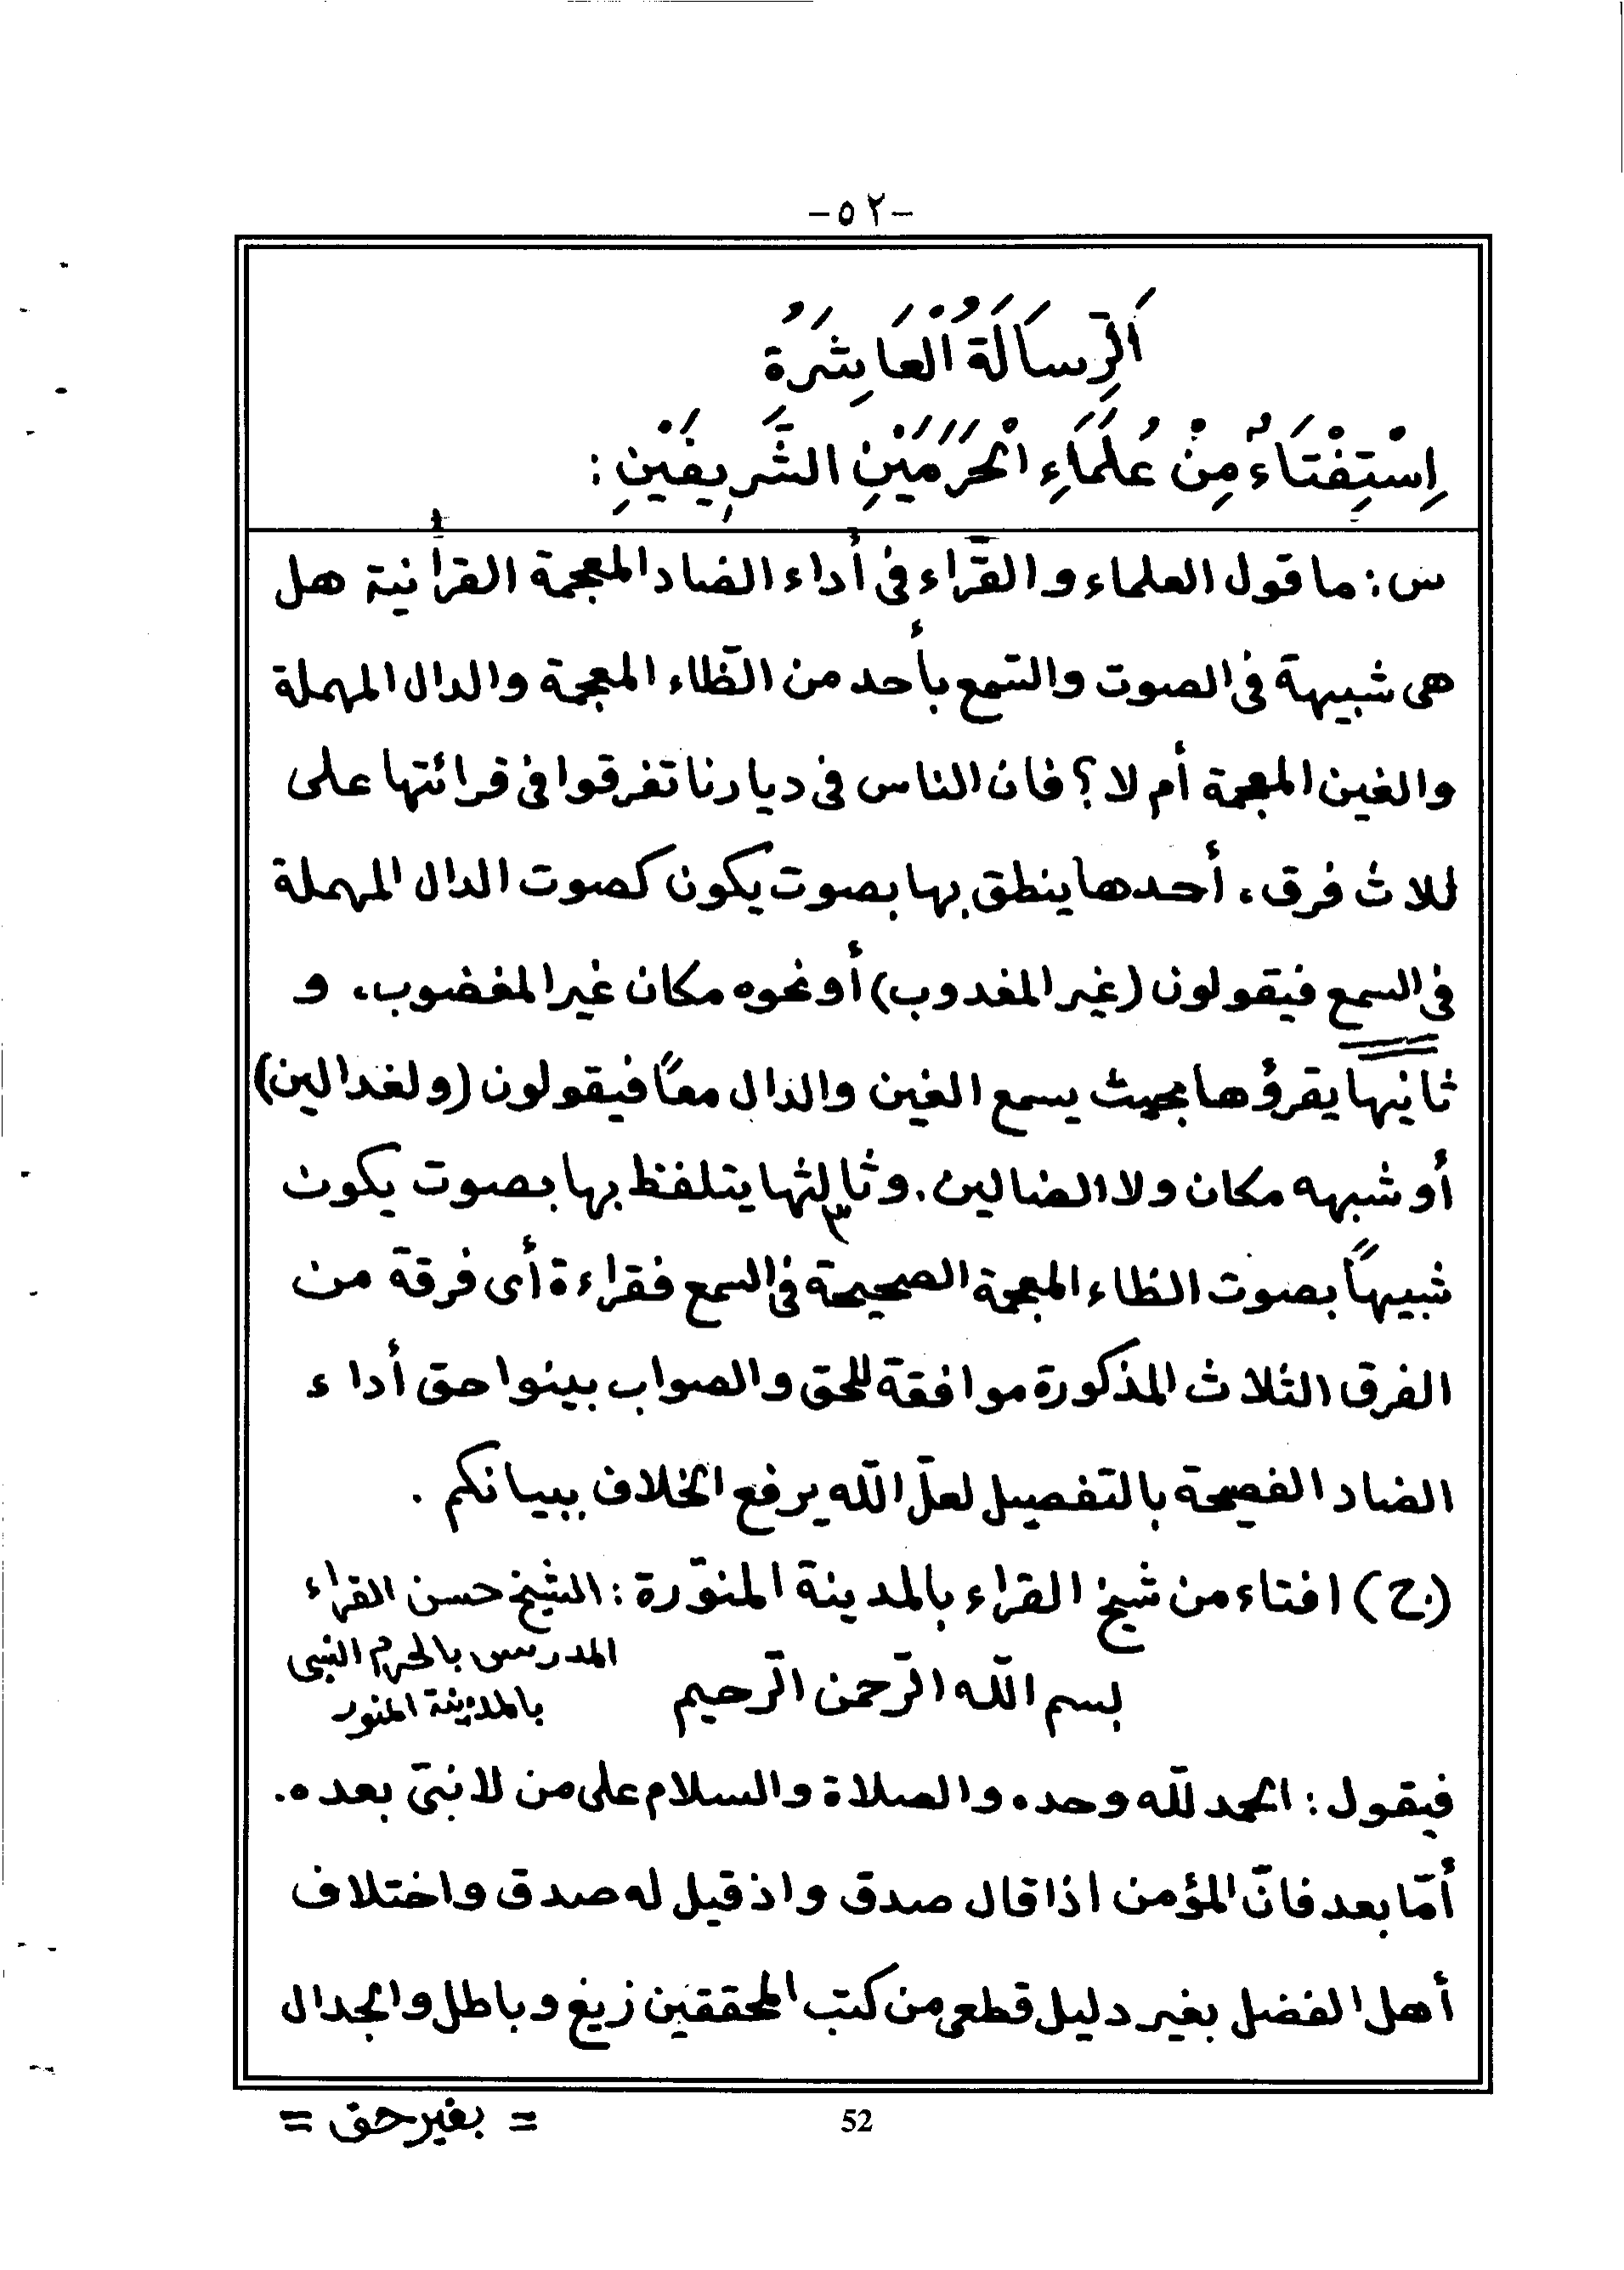 -٥٢-
اَلرِّسَالَةُ الْعَاشِرَةُ
اِسْتِفْتَاءٌ مِنْ عُلَمَاءِ الْحَرَمَيْنِ الشَّرِيفَيْنِ :
س : ما قول العلماء والقرّاء فى أداء الضاد المعجمة القرأنية هل
هى شبيهة فى الصوت والسمع بأحد من الظّاء المعجمة والدال المهملة
والغين المعجمة أم لا ؟ فان الناس فى ديارنا تفرقوا فى قرائتها على
ثلاث فرق ، أحدها ينطق بها بصوت يكون كصوت الدال المهملة
فى السمع فيقولون (غير المغدوب) أو نحوه مكان غير المغضوب ، و
ثانيها يقرؤها بحيث يسمع الغين والدال معًا فيقولون (ولغدالين)
أو شبهه مكان ولا الضالين . وثالثها يتلفظ بها بصوت يكون
٣
شبيهاً بصوت الظاء المعجمة الصحيحة فى السمع فقراءة أى فرقة من
الفرق الثلاث المذكورة موافقة للحق والصواب بينوا حق أداء
الضاد الفصيحة بالتفصيل لعلّ الله يرفع الخلاف ببيانكم .
(ج) افتاء من شيخ القراء بالمدينة المنوّرة : الشيخ حسن القراء
المدرس بالحرم النبى
بالمدينة المنور
بسم الله الرّحمن الرّحيم
فيقول : الحمد للّه وحده والصلاة والسلام على من لا نبىّ بعده .
أمّا بعد فانّ المؤمن اذا قال صدق واذ قيل له صدق واختلاف
أهل الفضل بغير دليل قطعى من كتب المحققين زيغ وباطل والجدال
= بغير حق =
52